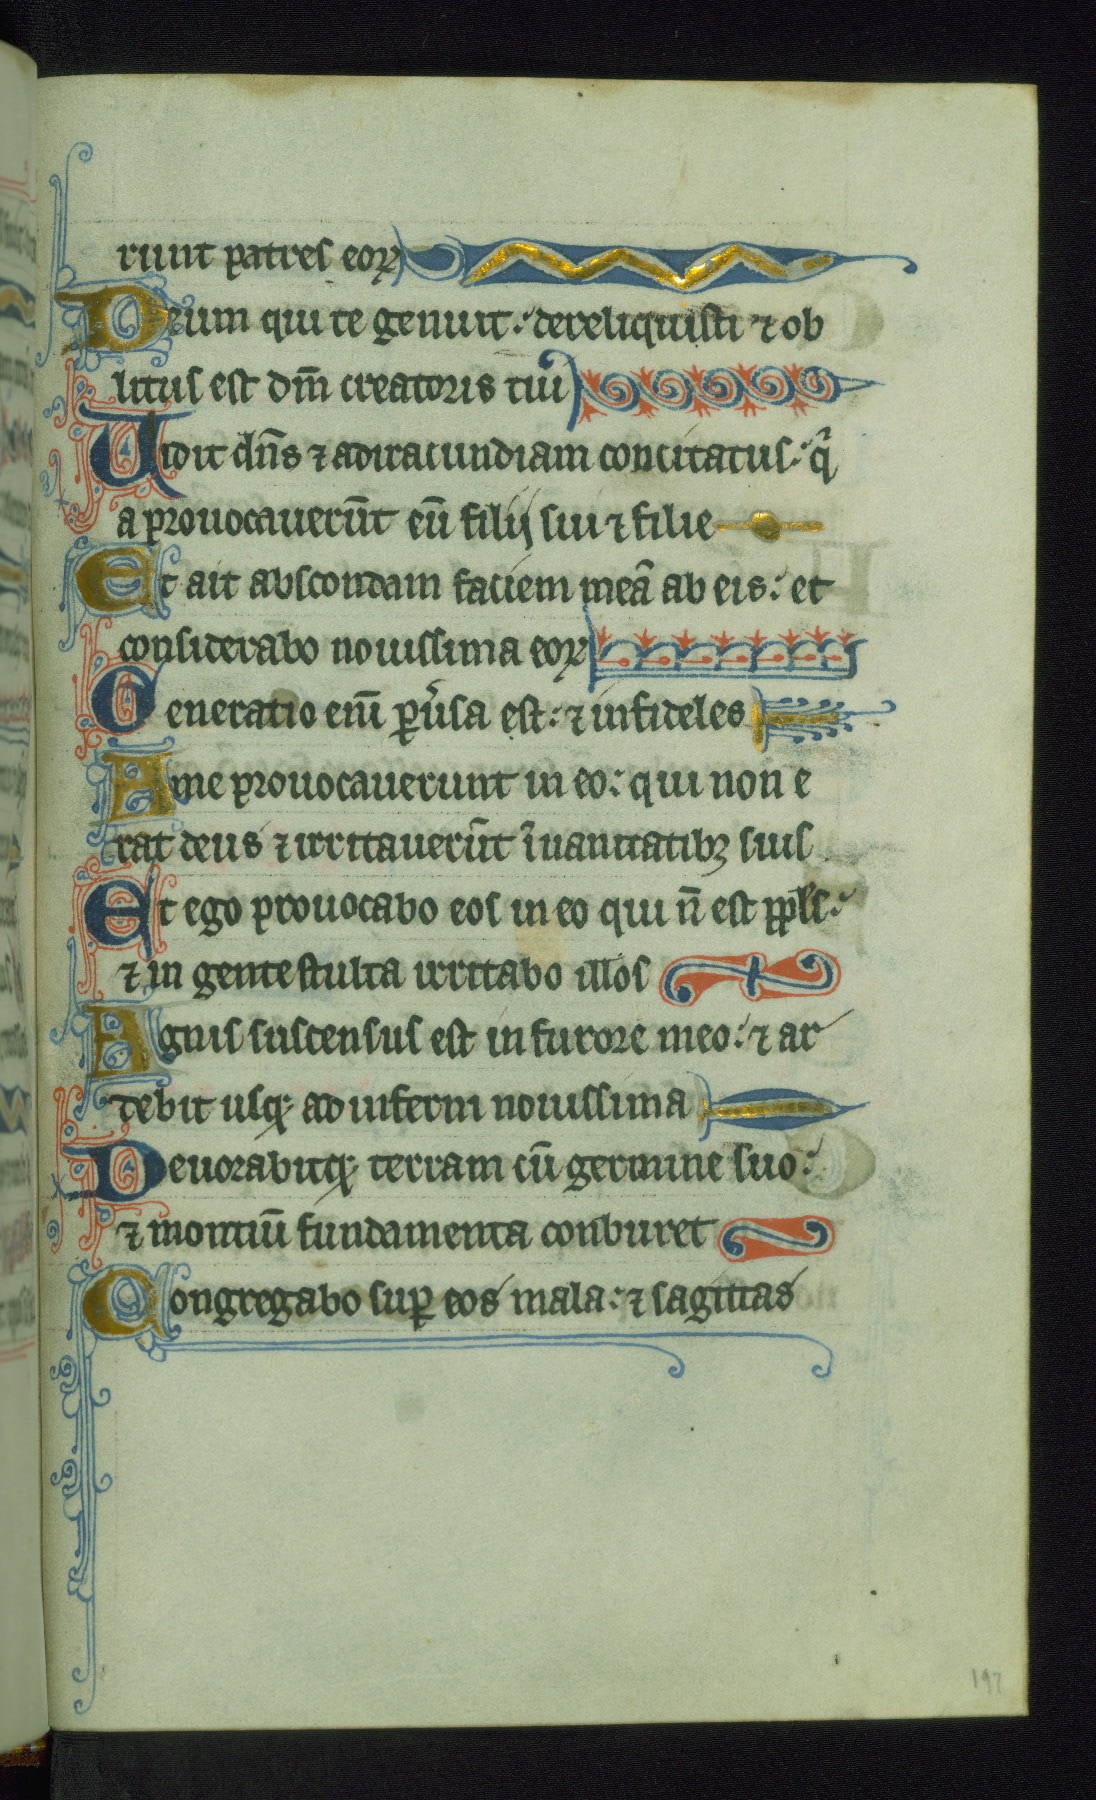 runt patres eoꝝ
Deum qui te genuit ⸵ dereliquisti ⁊ ob
litus est dn̄i creatoris tui
Uidit dn̄s ⁊ adiracundiam concitatus ⸵ qͥ
a prouocauerūt eū filij sui ⁊ filie
Et ait abscondam faciem meā ab eis ⸵ et
considerabo nouissima eoꝝ
Generatio enī ꝑuͥsa est ⸵ ⁊ infideles
A me prouocauerunt in eo ⸵ qui non e
rat deus ⁊ irritauerūt ī uanitatibꝫ suis
Et ego prouocabo eos in eo qui n̄ est ppłs ⸵
⁊ in gente stulta irritabo illos
Ignis suscensus est in furore meo ⸵ ⁊ ar
debit usqꝫ ad inferni nouissima
Deuorabitqꝫ terram cū germine suo ⸵
⁊ montiū fundamenta conburet
Congregabo suꝑ eos mala ⸵ ⁊ sagittas
197